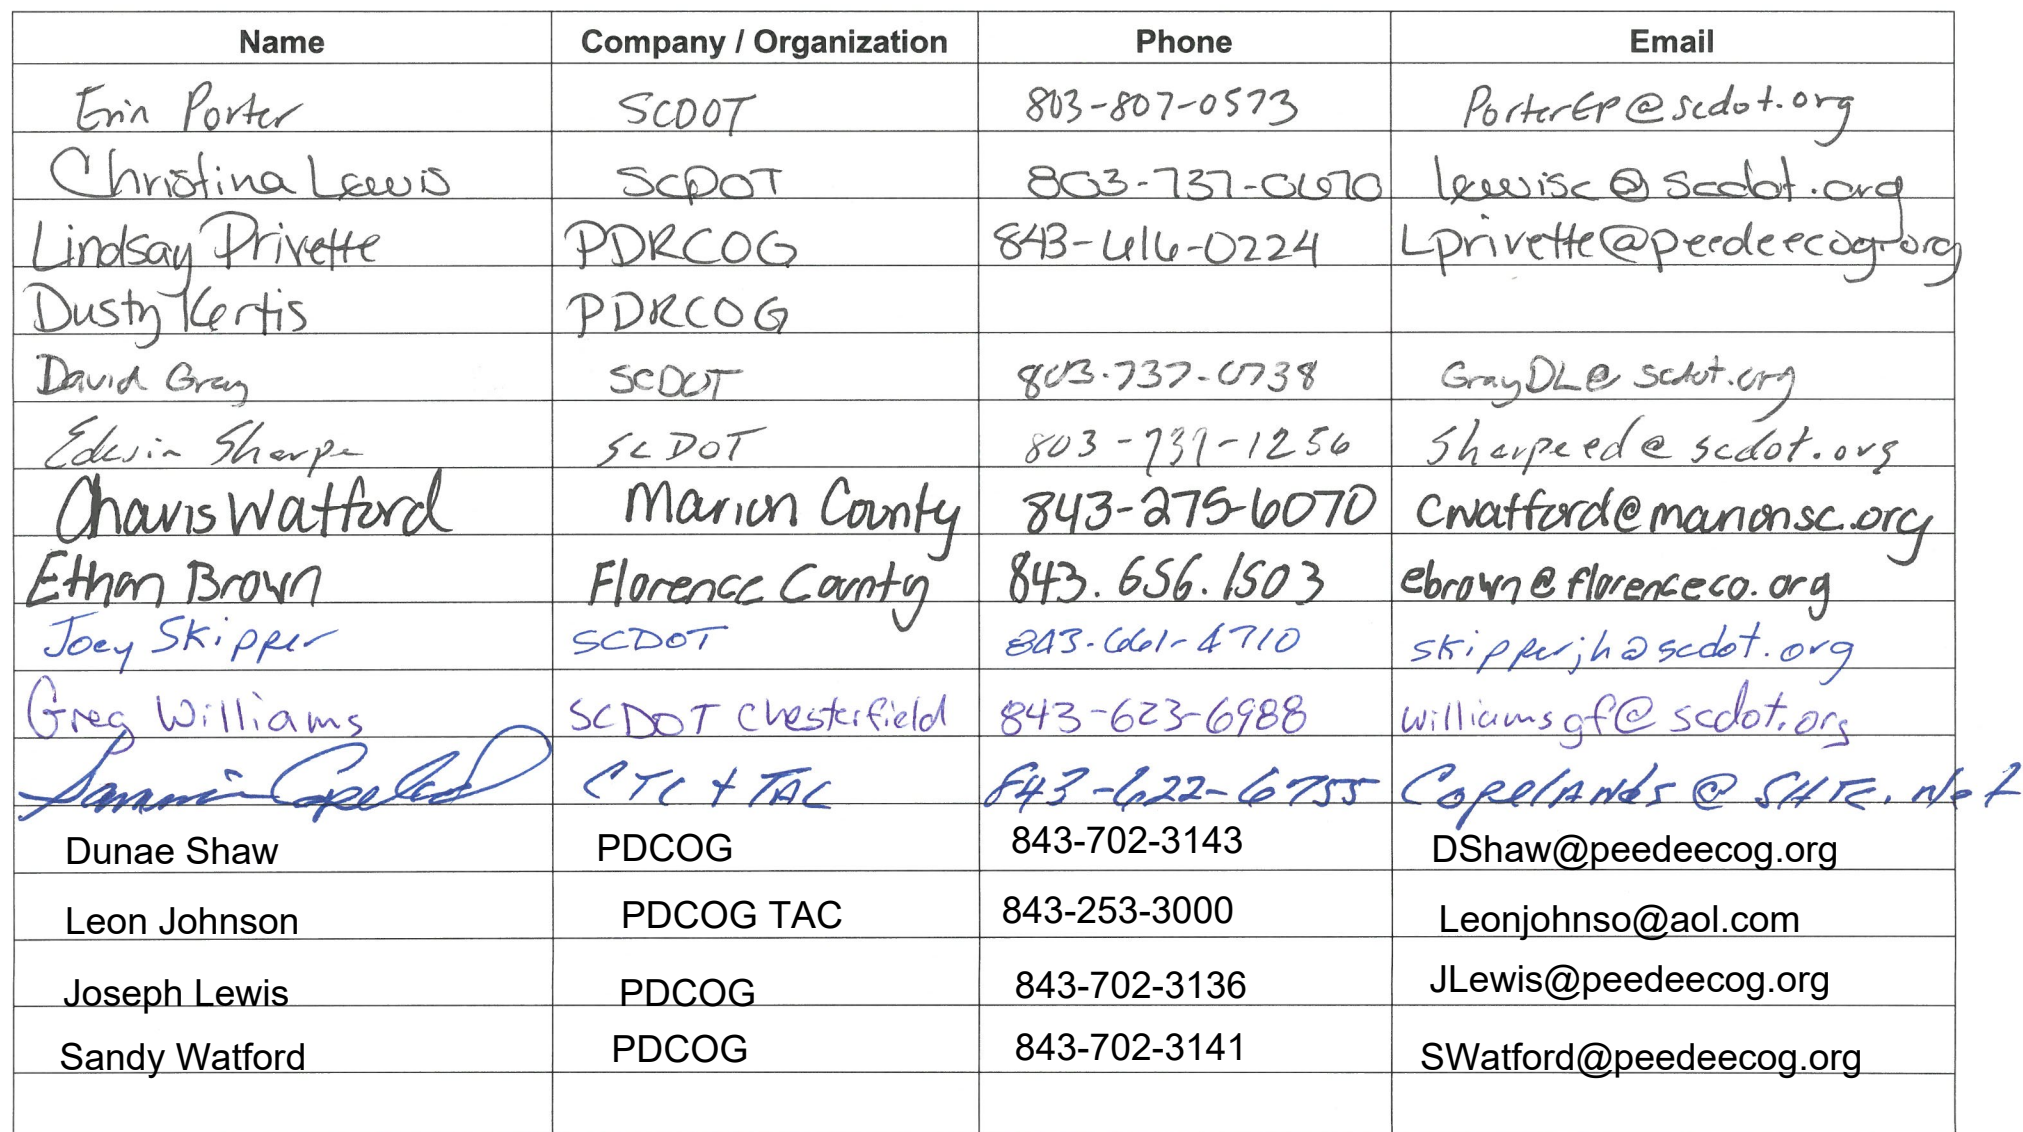 Name Company / Organization Phone Email
Erin Porter SCDOT 803-807-0573 PorterEP@scdot.org
Christina Lewis SCDOT 803-737-0670 lewisc@scdot.org
Lindsay Privette PDRCOG 843-616-0224 Lprivette@peedeecog.org
Dusty Kertis PDRCOG
David Gray SCDOT 803.737-0738 GrayDL@scdot.org
Edwin Sharpe SCDOT 803-737-1256 Sharpeed@scdot.org
Chavis Watford Marion County 843-275-6070 cwatford@marionsc.org
Ethan Brown Florence County 843.656.1503 ebrown@florenceco.org
Joey Skipper SCDOT 843-661-4710 skipperjh@scdot.org
Greg Williams SCDOT Chesterfield 843-623-6988 williamsgf@scdot.org
Copeland CTC + TAC 843-622-6755 Copelands@SHTC.net
Dunae Shaw PDCOG 843-702-3143 DShaw@peedeecog.org
Leon Johnson PDCOG TAC 843-253-3000 Leonjohnso@aol.com
Joseph Lewis PDCOG 843-702-3136 JLewis@peedeecog.org
Sandy Watford PDCOG 843-702-3141 SWatford@peedeecog.org